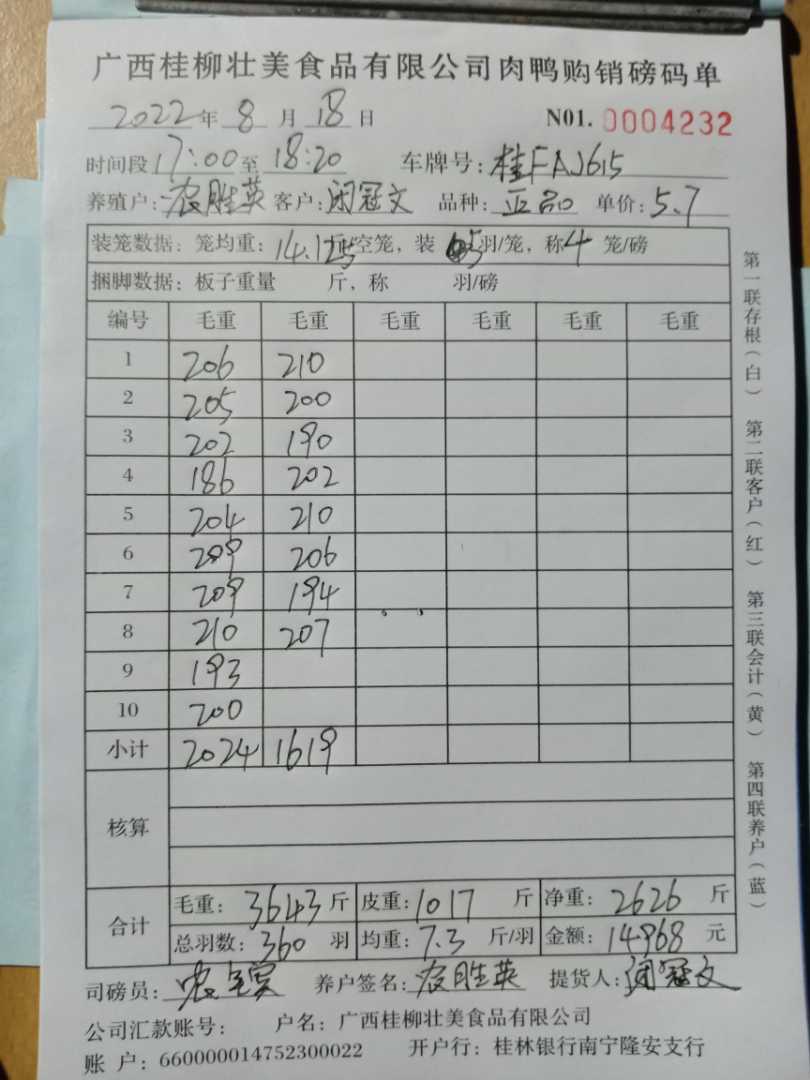 广西桂柳壮美食品有限公司肉鸭购销磅码单
2022年 8 月 18 日 N01. 0004232
时间段 17:00 至 18:20 车牌号: 桂FAJ615
养殖户: 农胜英 客户: 闭冠文 品种: 正品 单价: 5.7
装笼数据: 笼均重: 14.125 空笼, 装 5 羽/笼, 称 4 笼/磅
捆脚数据: 板子重量 斤, 称 羽/磅
编号 毛重 毛重 毛重 毛重 毛重 毛重
1 206 210
2 205 200
3 202 190
4 186 202
5 204 210
6 209 206
7 209 194
8 210 207
9 193
10 200
小计 2024 1619
核算
合计 毛重: 3643 斤 皮重: 1017 斤 净重: 2626 斤
总羽数: 360 羽 均重: 7.3 斤/羽 金额: 14968 元
司磅员: 养户签名: 农胜英 提货人: 闭冠文
公司汇款账号: 户名: 广西桂柳壮美食品有限公司
账 户: 660000014752300022 开户行: 桂林银行南宁隆安支行
第一联存根(白) 第二联客户(红) 第三联会计(黄) 第四联养户(蓝)